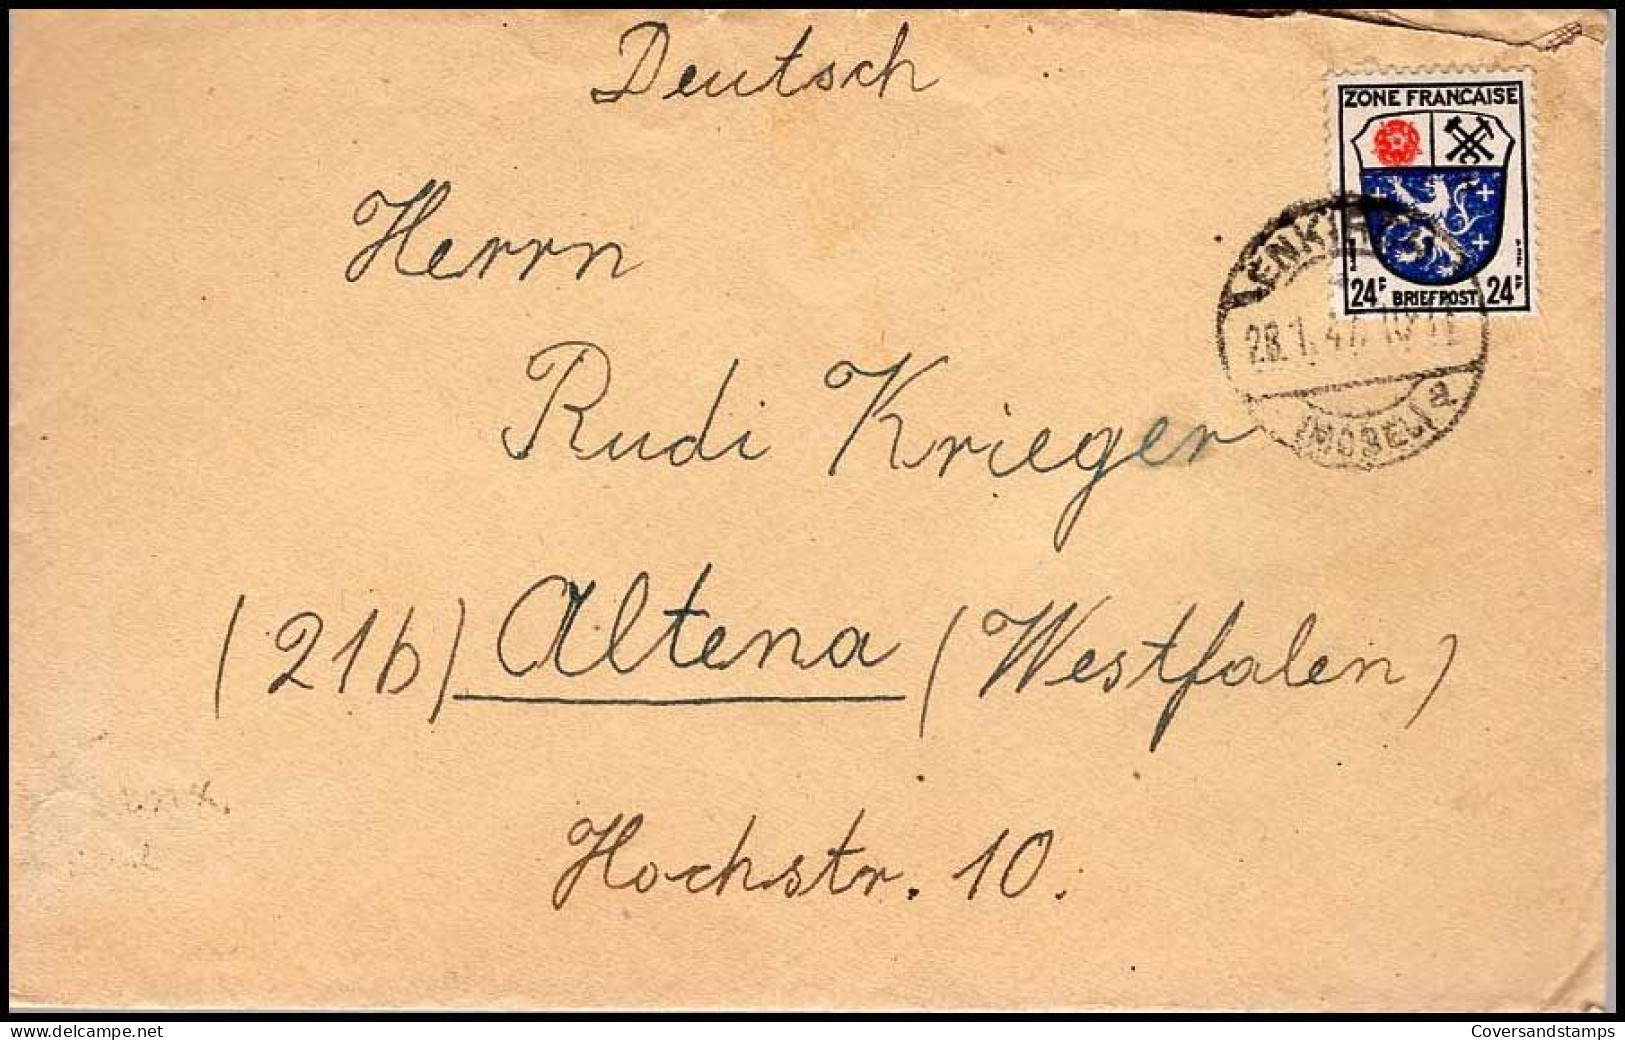 Deutsch
ZONE FRANCAISE
24F BRIEFPOST 24F
ENKIRCH
28.1.47.10-11
(MOSEL) a
Herrn
Rudi Krieger
(21b) Altena (Westfalen)
Hochstr. 10.
www.delcampe.net
Coversandstamps